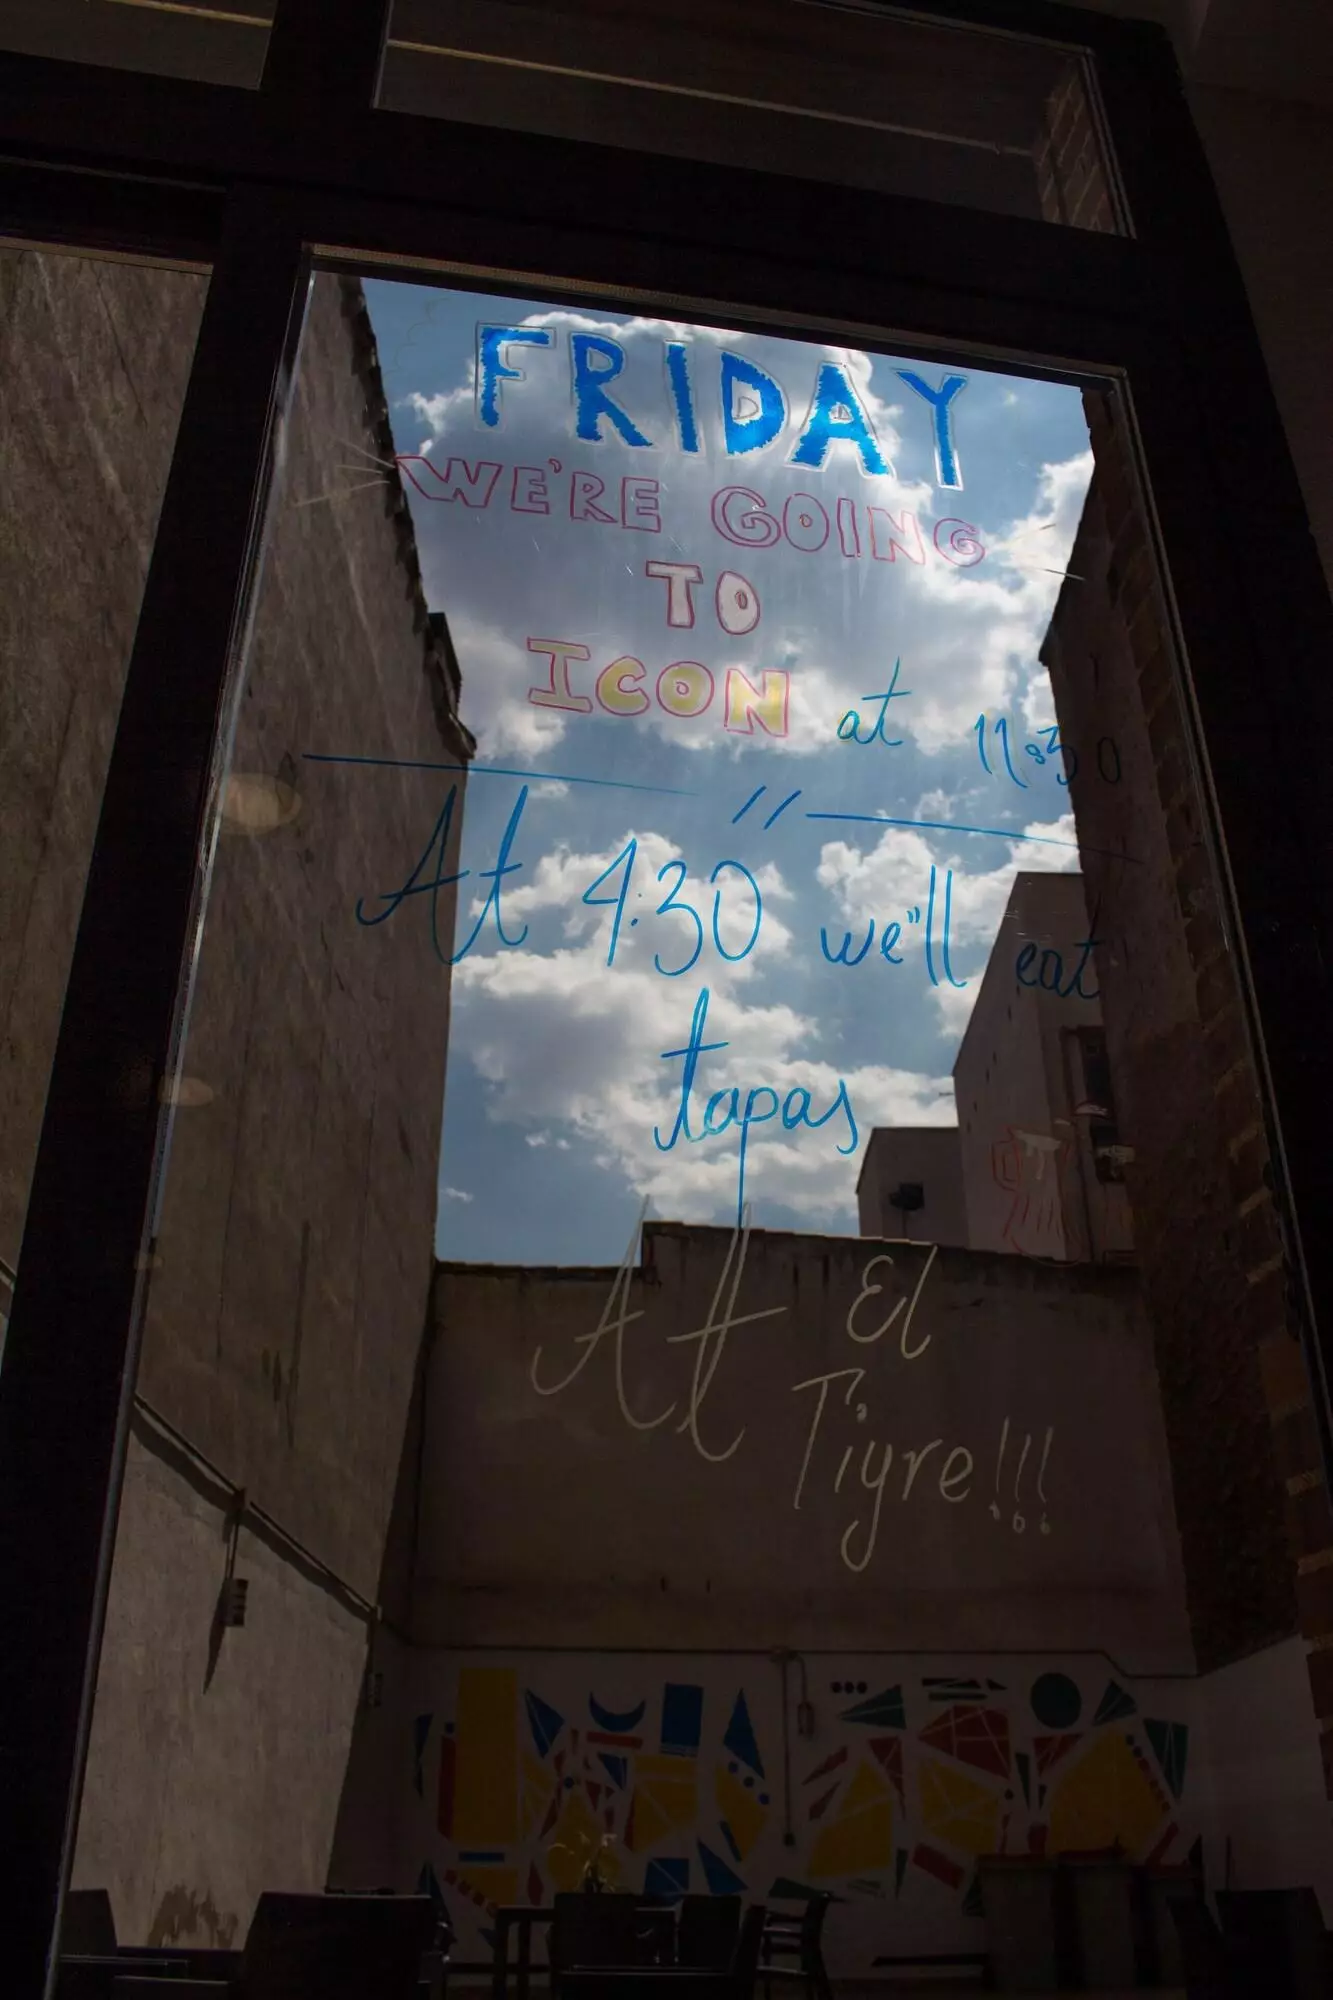 FRIDAY
WE'RE GOING
TO
ICON at 11:30
At 4:30 we"ll eat
tapas
At El
Tigre!!!